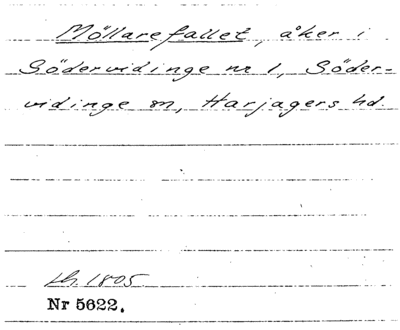 Möllarefallet, åker i
Södervidinge nr 1, Söder-
vidinge sn, Harjagers hd.
1805
Nr 5622.